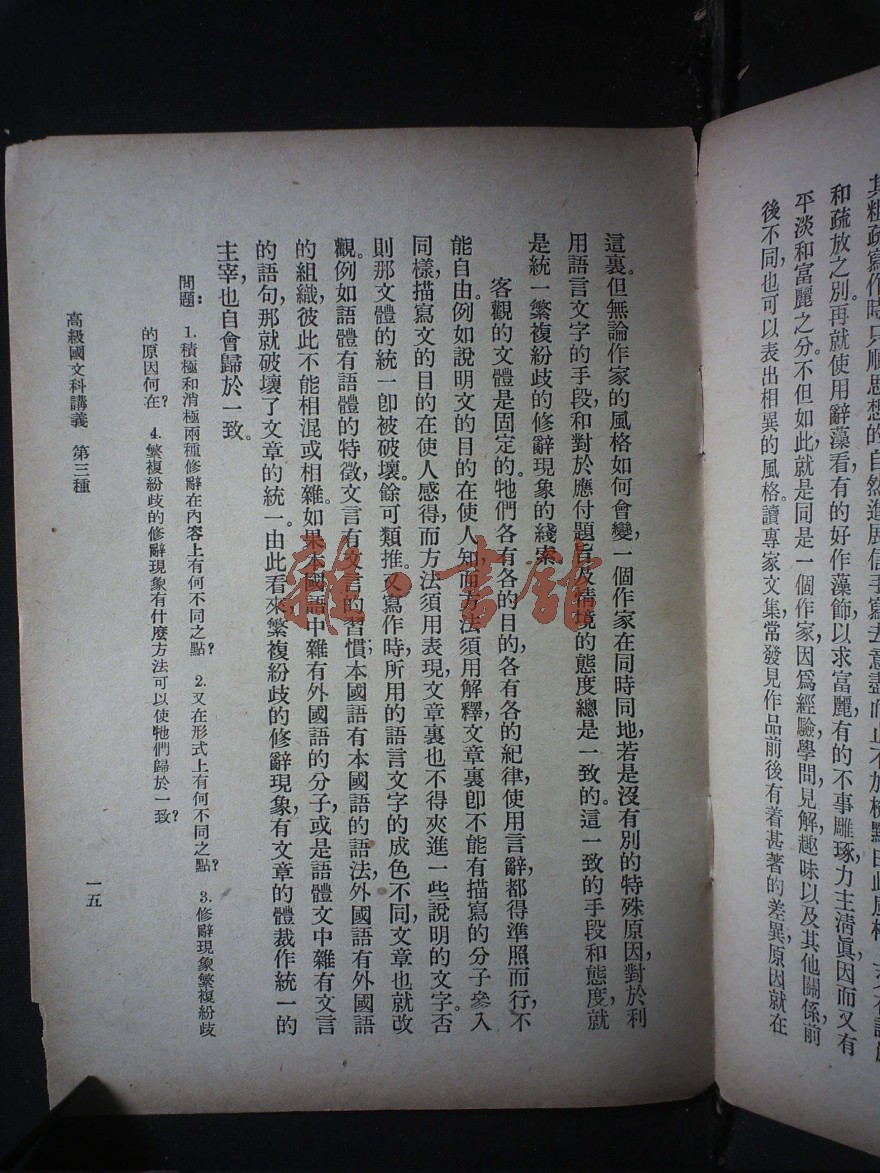 其粗疏寫作時只順思想的自然進展信手寫去意盡而止不加檢點由此風格
和疏放之別。再就使用辭藻看，有的好作藻飾以求富麗，有的不事雕琢，力主清眞，因而又有
平淡和富麗之分。不但如此，就是同是一個作家，因爲經驗，學問，見解，趣味以及其他關係，前
後不同，也可以表出相異的風格。讀專家文集常發見作品前後有着甚著的差異，原因就在
這裏。但無論作家的風格如何會變，一個作家在同時同地，若是沒有別的特殊原因，對於利
用語言文字的手段，和對於應付題旨及情境的態度總是一致的。這一致的手段和態度，就
是統一繁複紛歧的修辭現象的綫索。
客觀的文體是固定的。牠們各有各的目的，各有各的紀律，使用言辭都得準照而行，不
能自由。例如說明文的目的在使人知，而方法須用解釋，文章裏卽不能有描寫的分子參入
同樣，描寫文的目的在使人感得，而方法須用表現，文章裏也不得夾進一些說明的文字。否
則那文體的統一卽被破壞。餘可類推。又寫作時所用的語言文字的成色不同，文章也就改
觀。例如語體有語體的特徵，文言有文言的習慣；本國語有本國語的語法，外國語有外國語
的組織，彼此不能相混或相雜。如果本國語中雜有外國語的分子，或是語體文中雜有文言
的語句，那就破壞了文章的統一。由此看來，繁複紛歧的修辭現象，有文章的體裁作統一的
主宰，也自會歸於一致。
問題：1. 積極和消極兩種修辭在內容上有何不同之點？ 2. 又在形式上有何不同之點？ 3. 修辭現象繁複紛歧
的原因何在？ 4. 繁複紛歧的修辭現象有什麼方法可以使牠們歸於一致？
高級國文科講義 第三種
一五
雜·書館